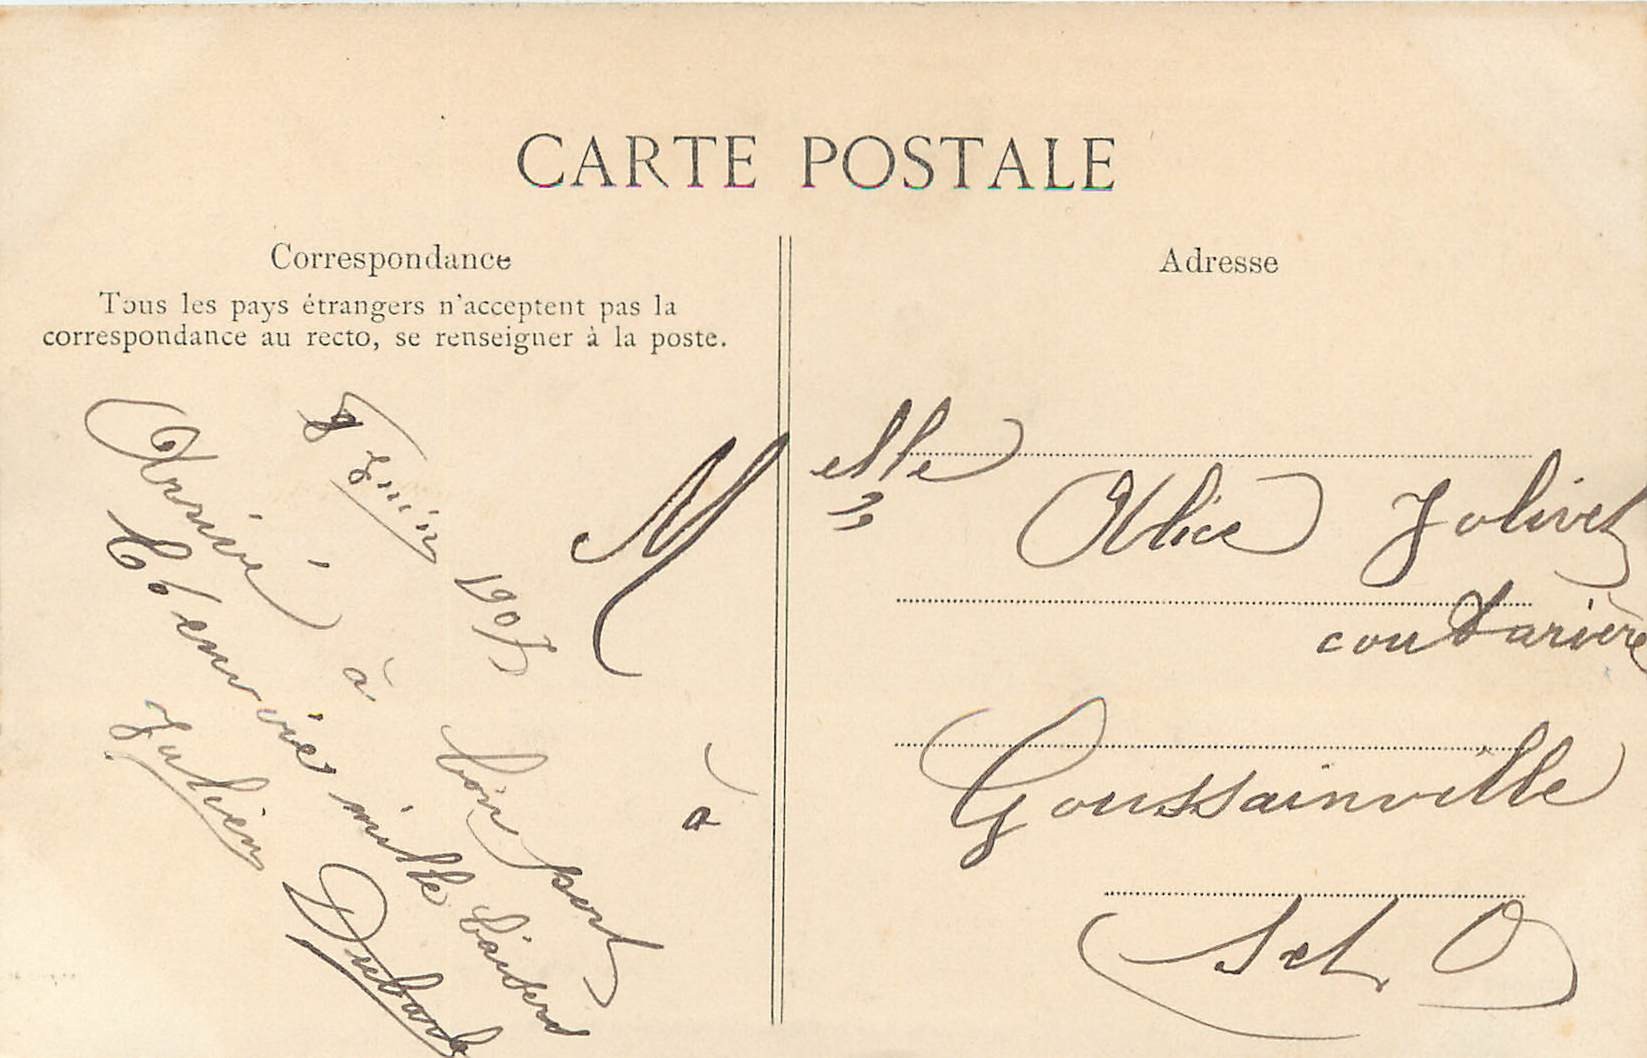 CARTE POSTALE
Correspondance
Tous les pays étrangers n'acceptent pas la
correspondance au recto, se renseigner à la poste.
8 Juin 1907
Arrivé à bon port
t'envoie mille baisers
Julien Dubard
Adresse
M elle
Alice Jolivet
couturière
à Goussainville
S et O